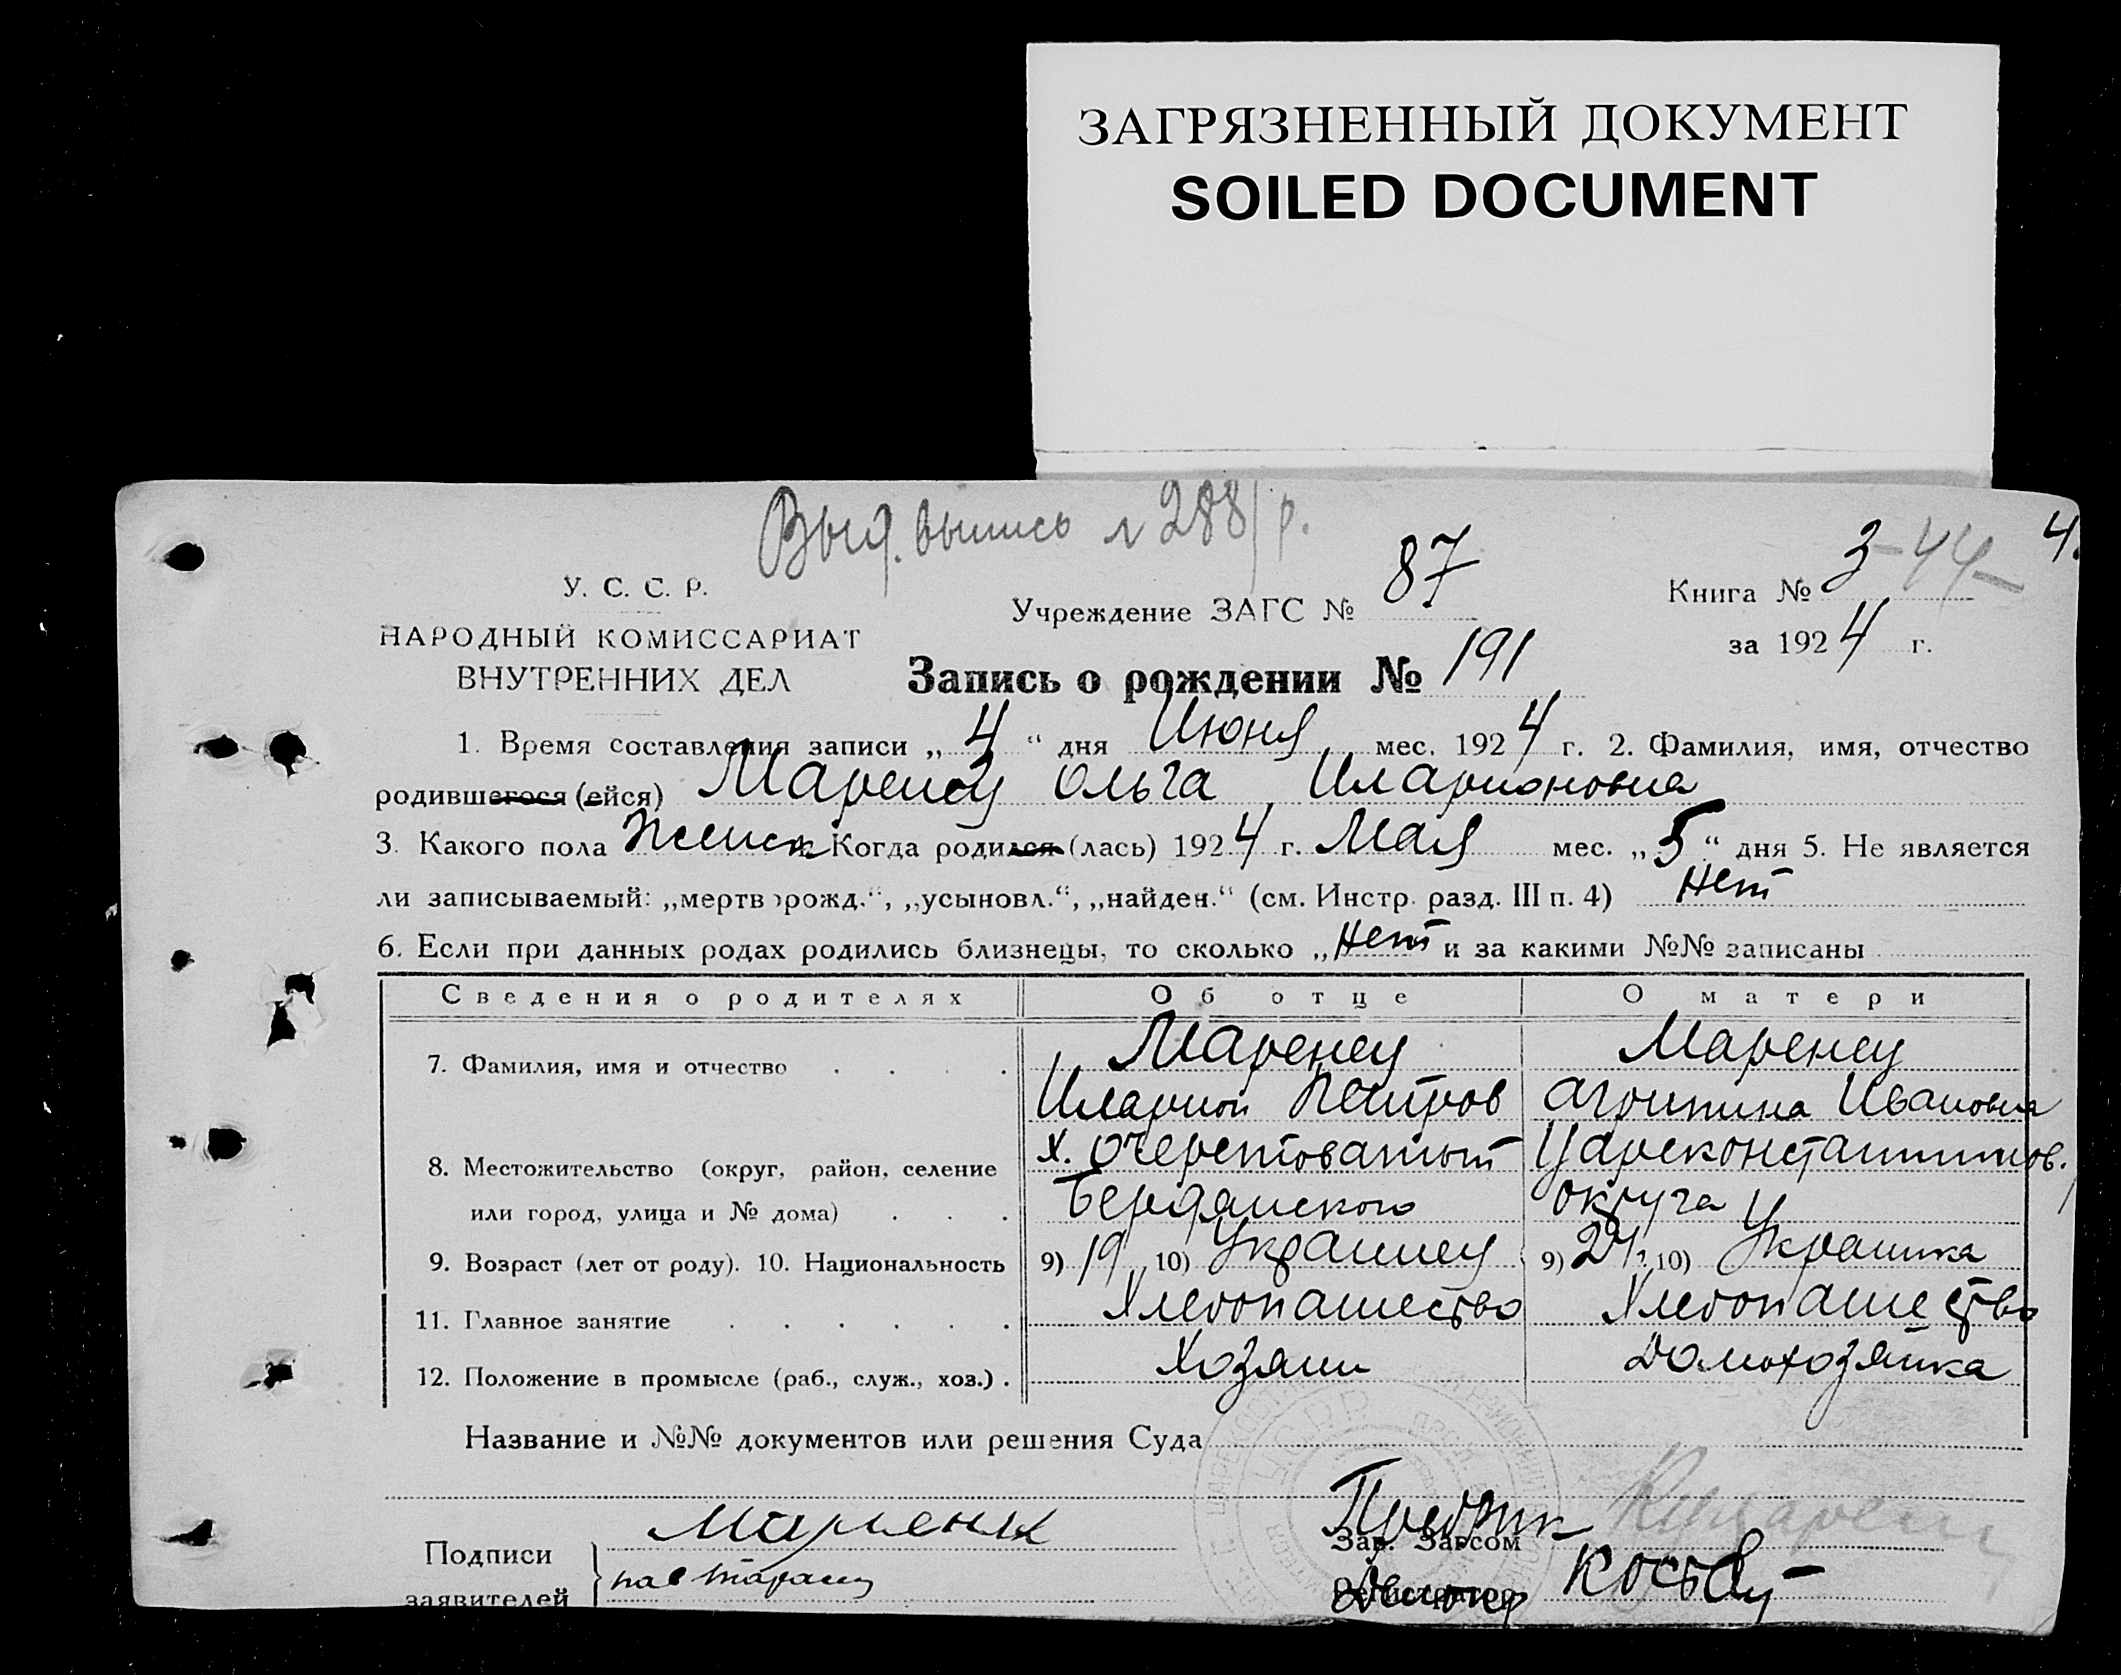 ЗАГРЯЗНЕННЫЙ ДОКУМЕНТ
SOILED DOCUMENT
Выд. выпись № 288/р.
4.
У. С. С. Р.
Учреждение ЗАГС № 87
Книга № 3 - 44 -
НАРОДНЫЙ КОМИССАРИАТ
за 1924 г.
ВНУТРЕННИХ ДЕЛ
Запись о рождении № 191
1. Время составления записи „ 4 “ дня Июня мес. 1924 г. 2. Фамилия, имя, отчество
родившегося (ейся) Маренец Ольга Иларионовна
3. Какого пола женск Когда родился (лась) 1924 г. Мая мес. „ 5 “ дня 5. Не является
ли записываемый: „мертворожд.“, „усыновл.“, „найден.“ (см. Инстр. разд. III п. 4) Нет
6. Если при данных родах родились близнецы, то сколько „ Нет и за какими №№ записаны
Сведения о родителях Об отце О матери
7. Фамилия, имя и отчество Маренец Маренец
Иларион Петров Агрипина Ивановна
8. Местожительство (округ, район, селение х. Очеретоватый Царсконстантинов.
или город, улица и № дома) Бердянского округа
9. Возраст (лет от роду). 10. Национальность 9) 19 10) Украинец 9) 21 10) Украинка
11. Главное занятие Хлебопашество Хлебопашество
12. Положение в промысле (раб., служ., хоз.) Хозяин Домохозяйка
Название и №№ документов или решения Суда
Подписи
заявителей
Зав. Загсом
Регистратор